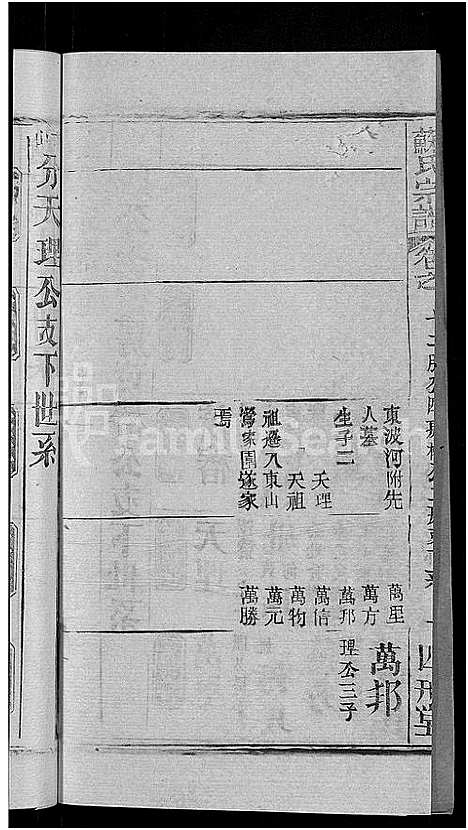 蘇氏宗譜
卷之
東波河附先
人墓
生子二
天理
天祖
祖遷入東山
鴬家園遂家
焉
萬里
萬方
萬邦
萬信
萬物
萬元
萬勝
萬邦
理公三子
分天理公支下世系
FamilySearch